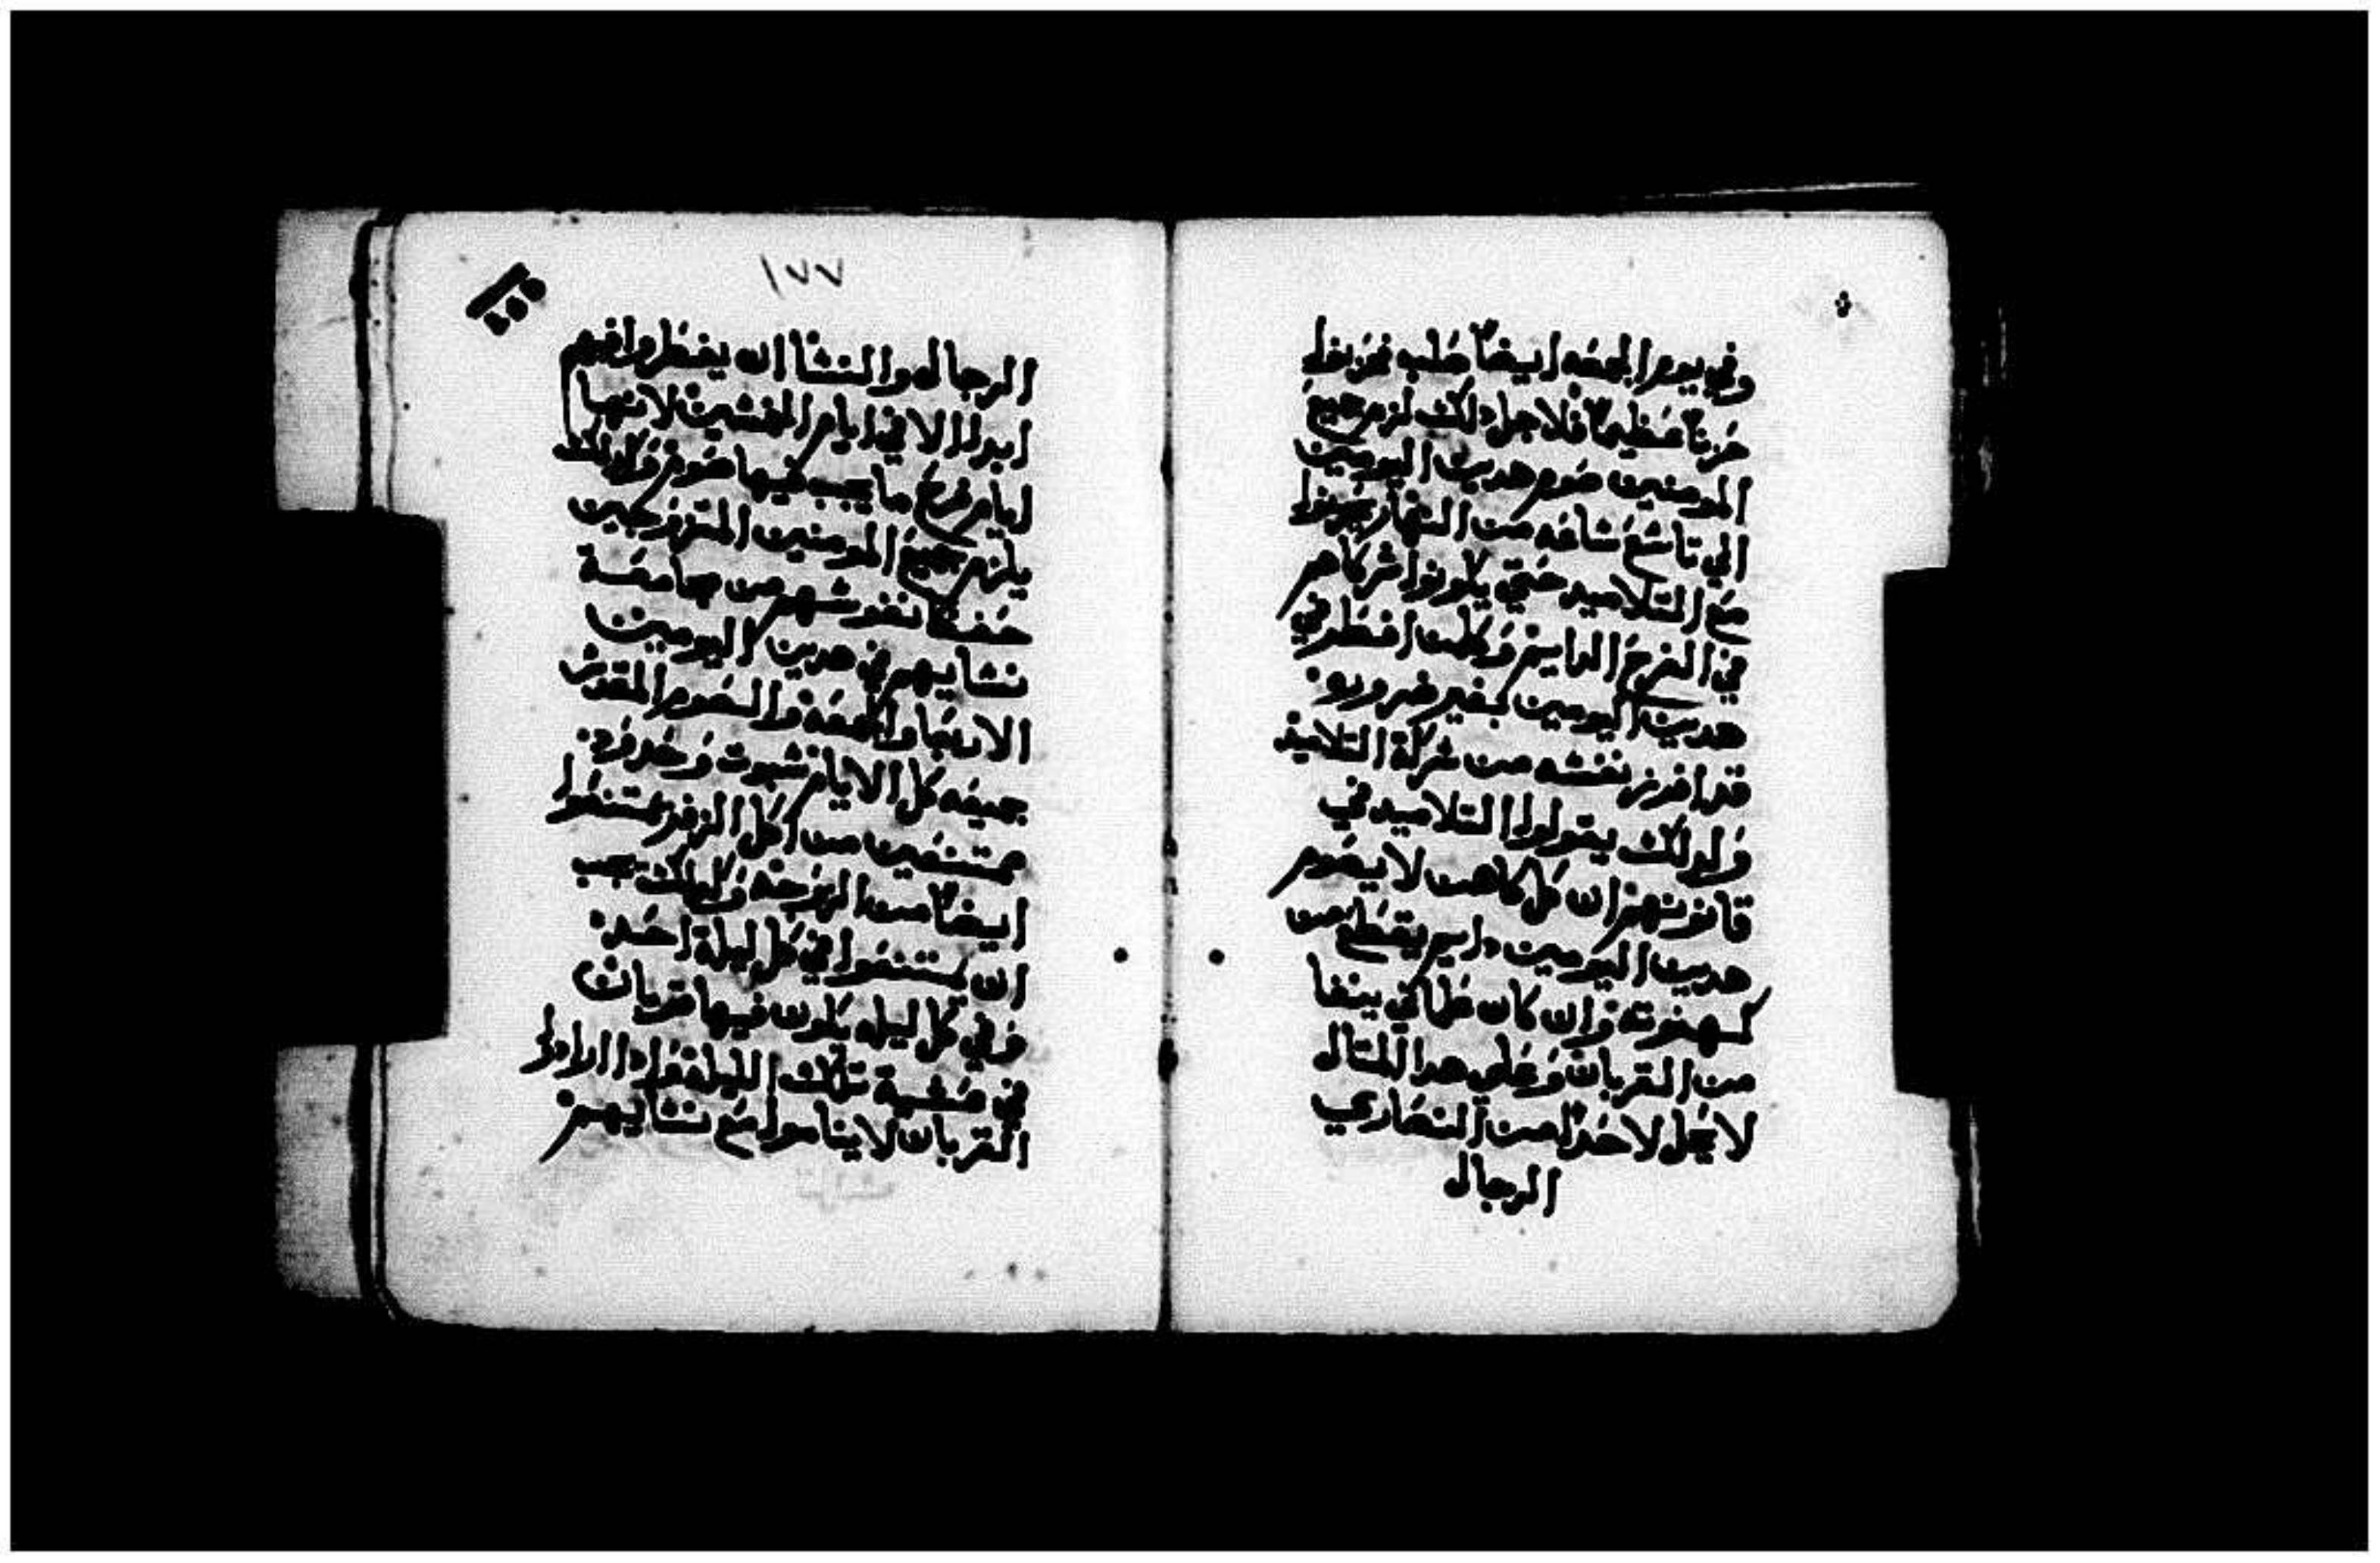 وفي يوم الجمعه ايضاً صلب فحزنوا
حزناً عظيماً فلاجل دلك لزم جميع
المومنين صوم هدين اليومين
الي تاسع ساعه من النهار يحزنوا
مع التلاميد حتي يكونوا شركاهم
في الفرح الدايم وكلمن افطر في
هدين اليومين بغير ضروره
قد افرز نفسه من شركة التلاميد
ولدلك يقولوا التلاميد في
قانونهم ان كل كاهن لا يصوم
هدين اليومين دايم يقطع من
كهنوته وان كان علماني ينفا
من القربان وعلي هدا المتال
لا يحل لاحداً من النصاري
الرجال
١٧٧
الرجال والنسا ان يفطروا فيهم
ابداً الا في ايام الخمسين لانها
ايام فرح ما يجب فيها صوم وكدلك
يلزم جميع المومنين المتزوجين
حفظ نفوسهم من مجامعة
نسايهم في هدين اليومين
الاربعا والجمعه والصوم المقدس
جميعه كل الايام سبوت وحدود
ممتنعين من اكل الزفر يمتنعوا
ايضاً من الزيجه وكدلك يجب
ان يمتنعوا في كل ليلة احد
وفي كل ليله يكون فيها قربان
في عشية تلك الليلة وادا ارادوا
القربان لا يناموا مع نسايهم